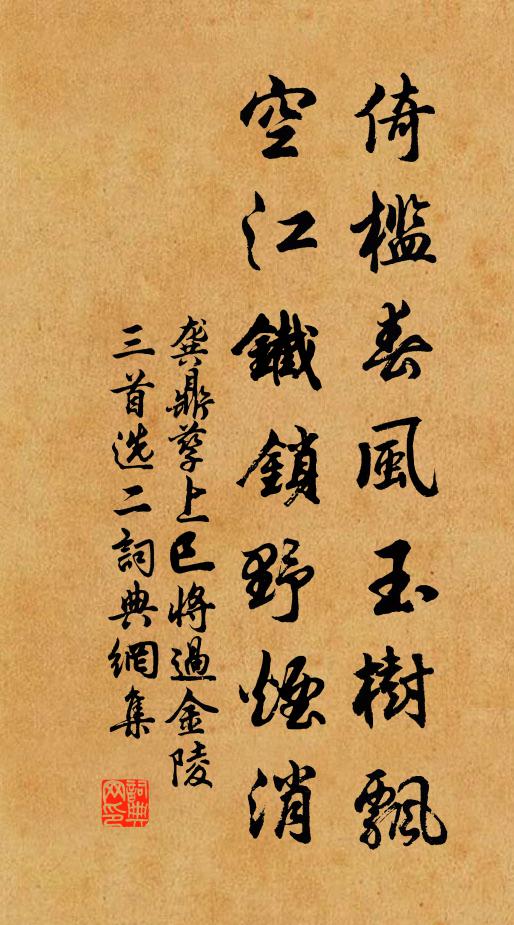 倚檻春風玉樹飄
空江鐵鎖野煙消
龔鼎孳上巳將過金陵
三首选二詞典網集
詞典
网印